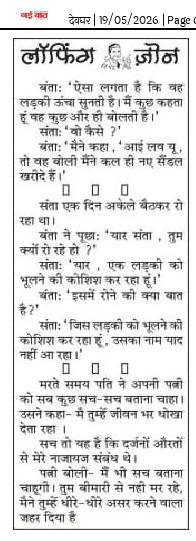 नई बात
देवघर | 19/05/2026 | Page
लॉफिंग जौन
बंता: 'ऐसा लगता है कि वह
लड़की ऊंचा सुनती है। मैं कुछ कहता
हूं वह कुछ और ही बोलती है।'
संता: 'वो कैसे ?'
बंता: 'मैंने कहा, 'आई लव यू ,
तो वह बोली मैंने कल ही नए सैंडल
खरीदे हैं।'
संता एक दिन अकेले बैठकर रो
रहा था।
बंता ने पूछा: 'यार संता , तुम
क्यों रो रहे हो ?'
संता: 'यार , एक लड़की को
भूलने की कोशिश कर रहा हूं।'
बंता: 'इसमें रोने की क्या बात
है?'
संता: 'जिस लड़की को भूलने की
कोशिश कर रहा हूं , उसका नाम याद
नहीं आ रहा।'
मरते समय पति ने अपनी पत्नी
को सब कुछ सच-सच बताना चाहा।
उसने कहा- मैं तुम्हें जीवन भर धोखा
देता रहा ।
सच तो यह है कि दर्जनों औरतों
से मेरे नाजायज संबंध थे।
पत्नी बोली- मैं भी सच बताना
चाहूगी। तुम बीमारी से नही मर रहे,
मैने तुम्हें धीरे-धीरे असर करने वाला
जहर दिया है